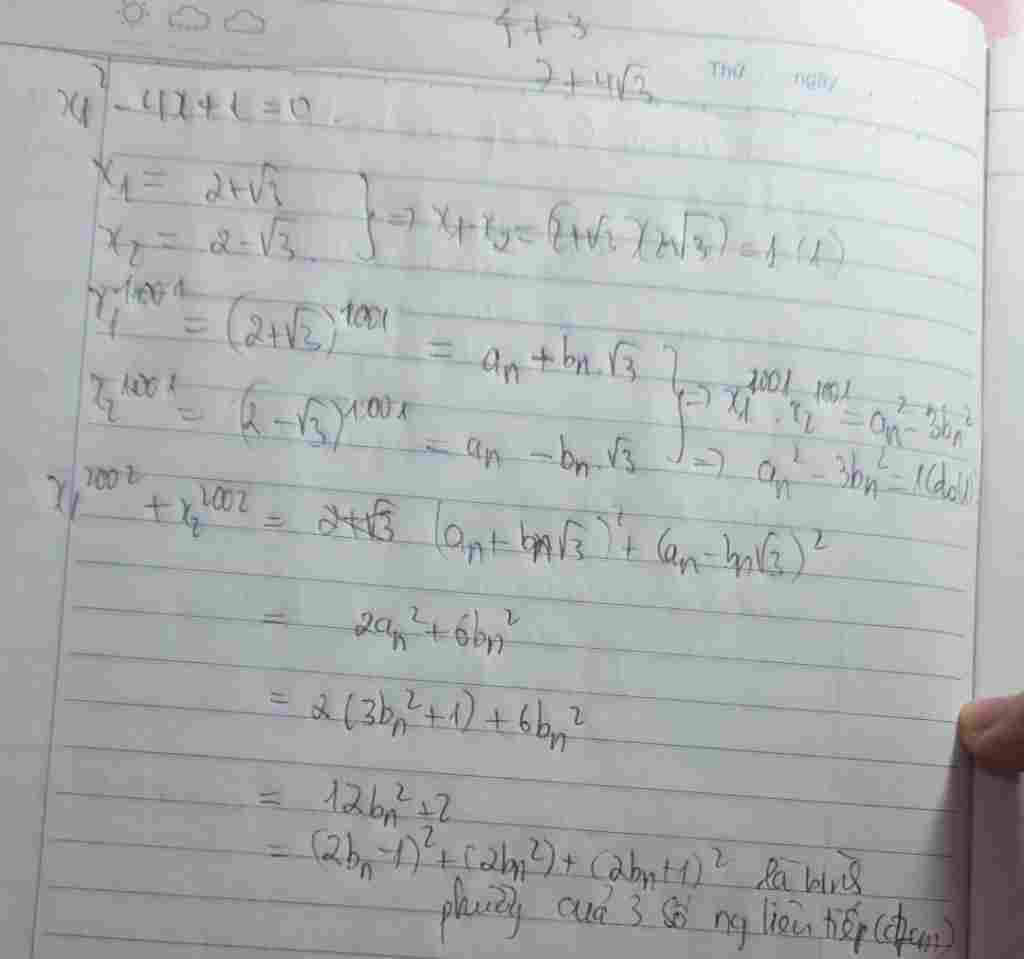 4 + 3
7 + 4√3
Thứ ngày
x² - 4x + 1 = 0.
x₁ = 2+√3
x₂ = 2-√3. } => x₁ x₂ = (2+√3)(2-√3) = 1 (1)
x₁¹⁰⁰¹ = (2+√3)¹⁰⁰¹ = aₙ + bₙ.√3
x₂¹⁰⁰¹ = (2-√3)¹⁰⁰¹ = aₙ - bₙ.√3 } => x₁¹⁰⁰¹ . x₂¹⁰⁰¹ = aₙ² - 3bₙ²
=> aₙ² - 3bₙ² = 1 (do(1)
x₁²⁰⁰² + x₂²⁰⁰² = (aₙ + bₙ√3)² + (aₙ - bₙ√3)²
= 2aₙ² + 6bₙ²
= 2(3bₙ²+1) + 6bₙ²
= 12bₙ² + 2
= (2bₙ-1)² + (2bₙ²) + (2bₙ+1)² là bình
phương của 3 số ng liên tiếp (đpcm)